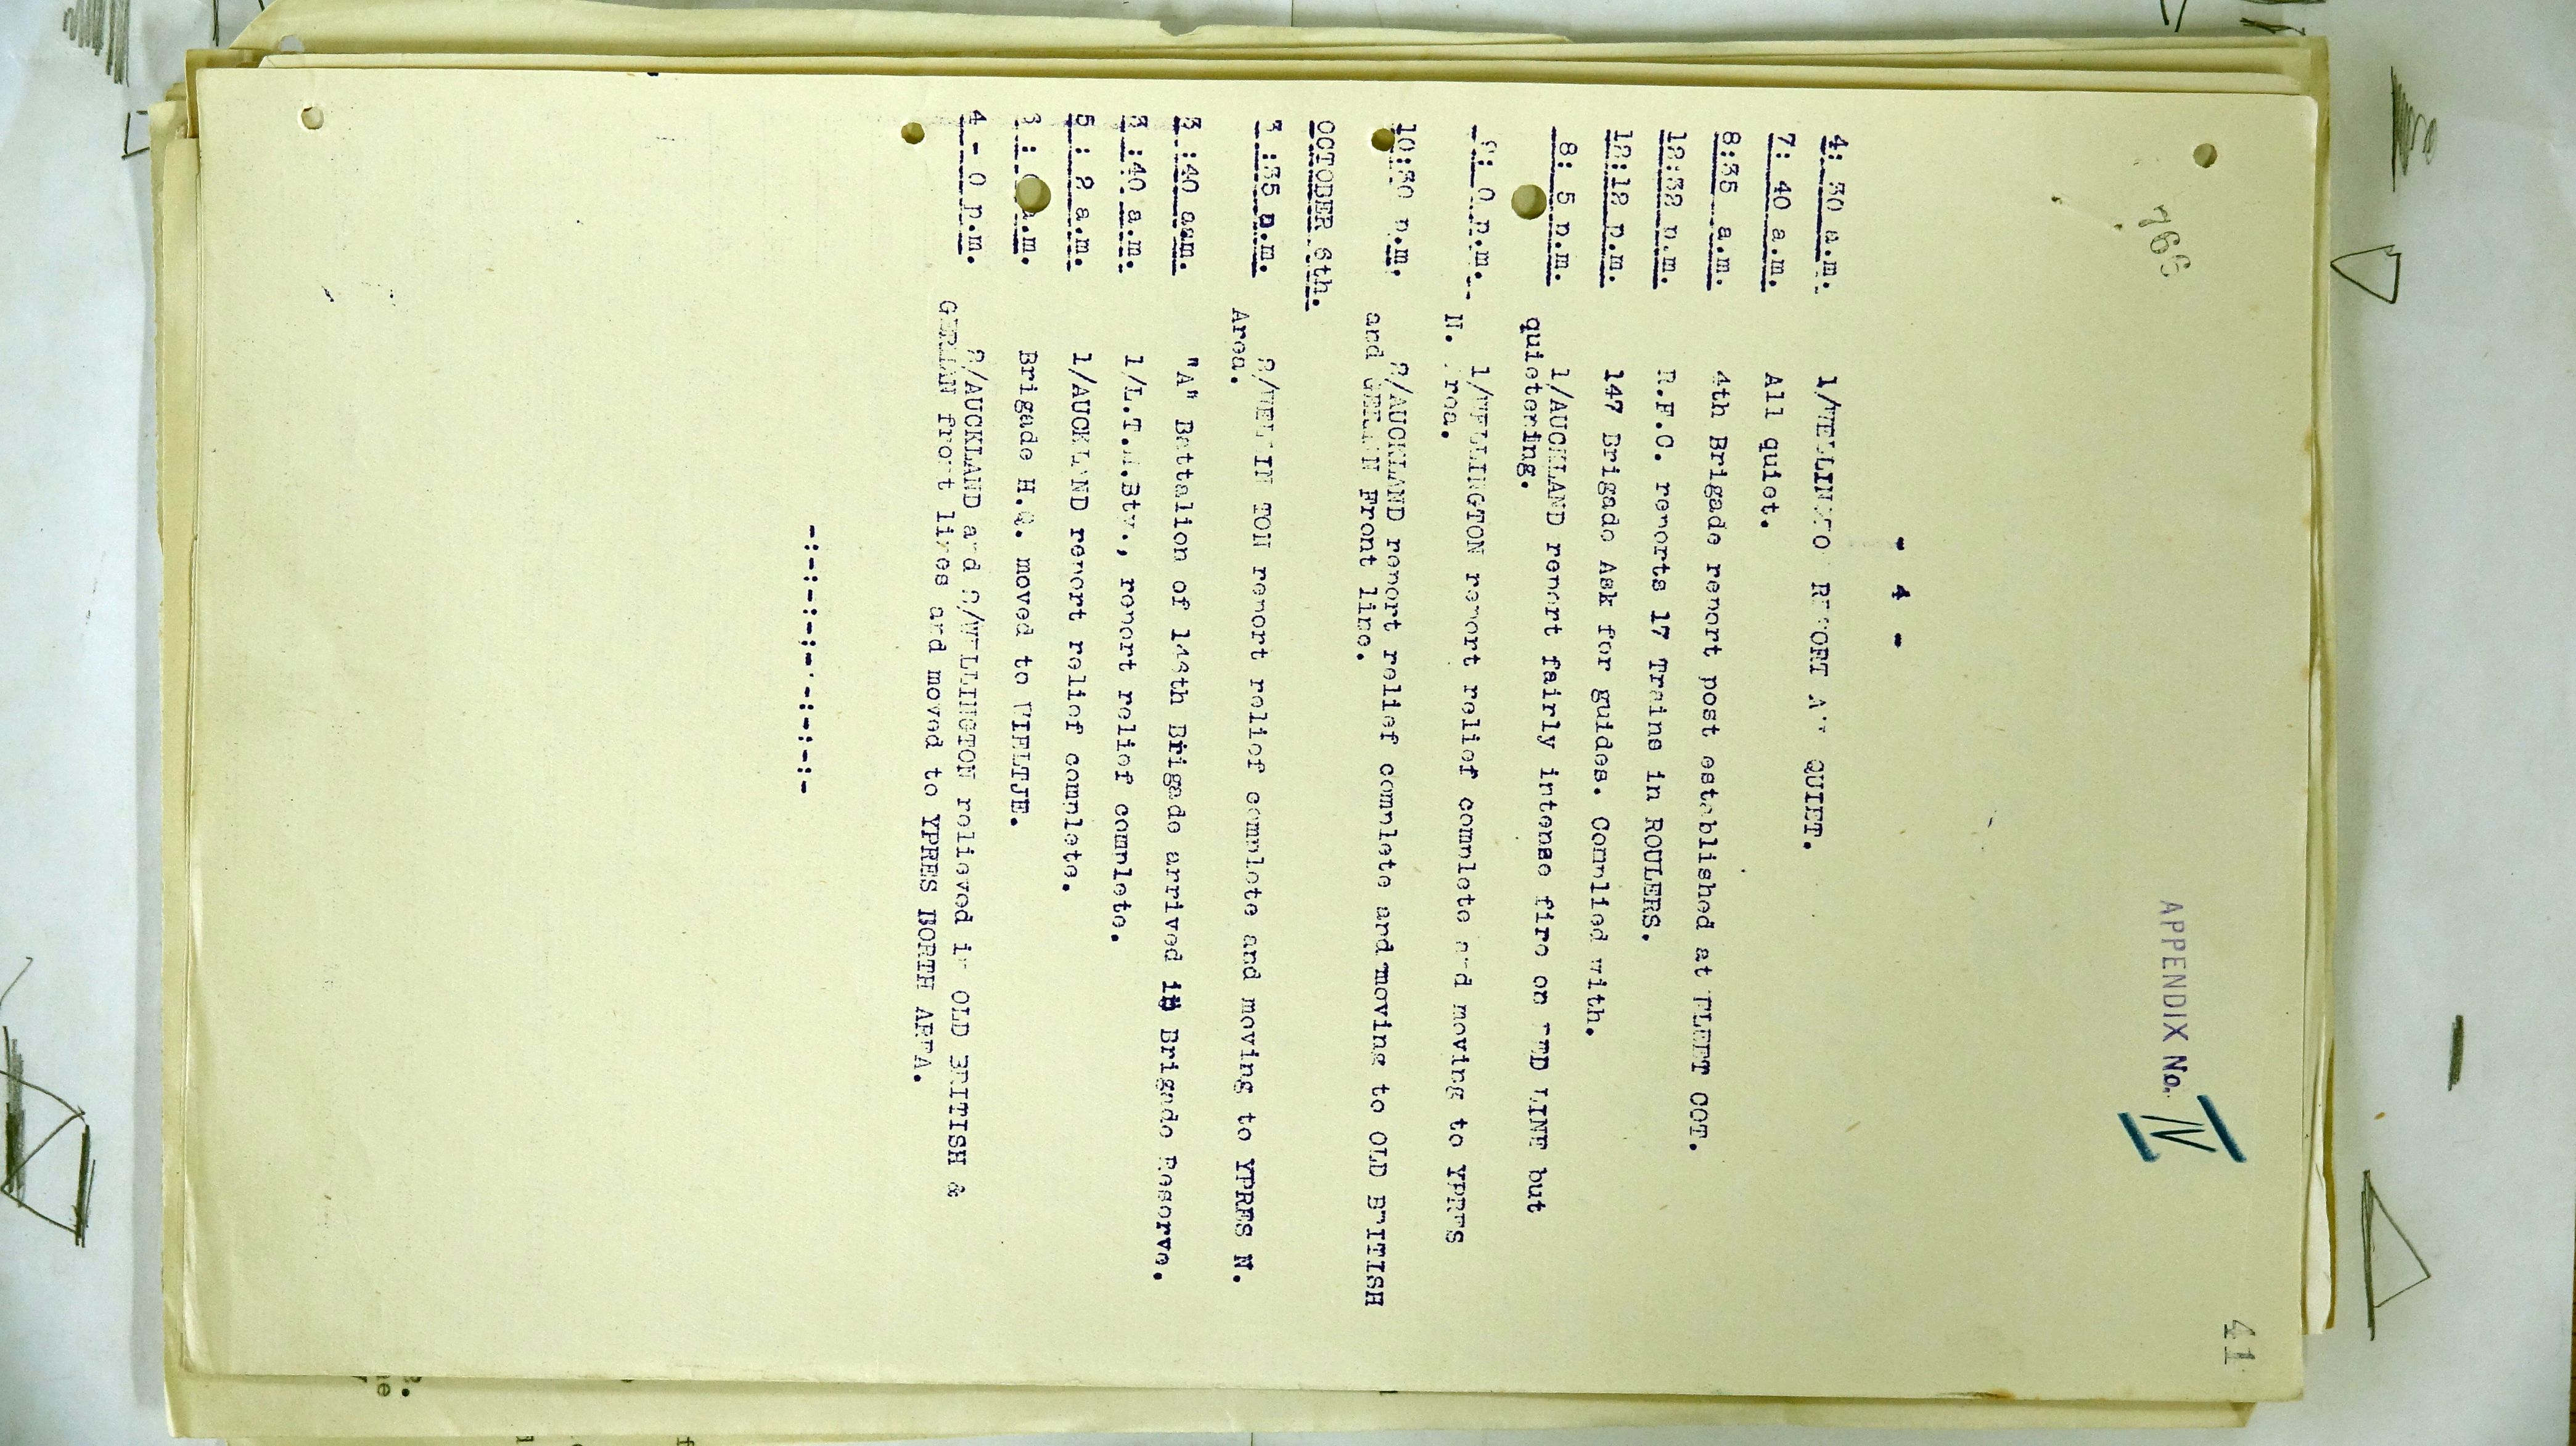 766
41
APPENDIX No. IV
- 4 -
4: 30 a.m. 1/WELLINGTON REPORT ALL QUIET.
7: 40 a.m. All quiet.
8:35 a.m. 4th Brigade report post established at FLEET COT.
12:32 p.m. R.F.C. reports 17 Trains in ROULERS.
12:12 p.m. 147 Brigade Ask for guides. Complied with.
8: 5 p.m. 1/AUCKLAND report fairly intense fire on RED LINE but
quietening.
9: 0 p.m. 1/WELLINGTON report relief complete and moving to YPRES
N. Area.
10:30 p.m. 2/AUCKLAND report relief complete and moving to OLD BRITISH
and GERMAN Front line.
OCTOBER 6th.
:35 a.m. 2/WELLINGTON report relief complete and moving to YPRES N.
Area.
3 :40 a.m. "A" Battalion of 148th Brigade arrived in Brigade Reserve.
3 :40 a.m. 1/L.T.M.Bty., report relief complete.
5 : 2 a.m. 1/AUCKLAND report relief complete.
.m. Brigade H.Q. moved to WIELTJE.
4 - 0 p.m. 2/AUCKLAND and 2/WELLINGTON relieved in OLD BRITISH &
GERMAN front lines and moved to YPRES NORTH AREA.
-:-:-:-:-:-:-:-